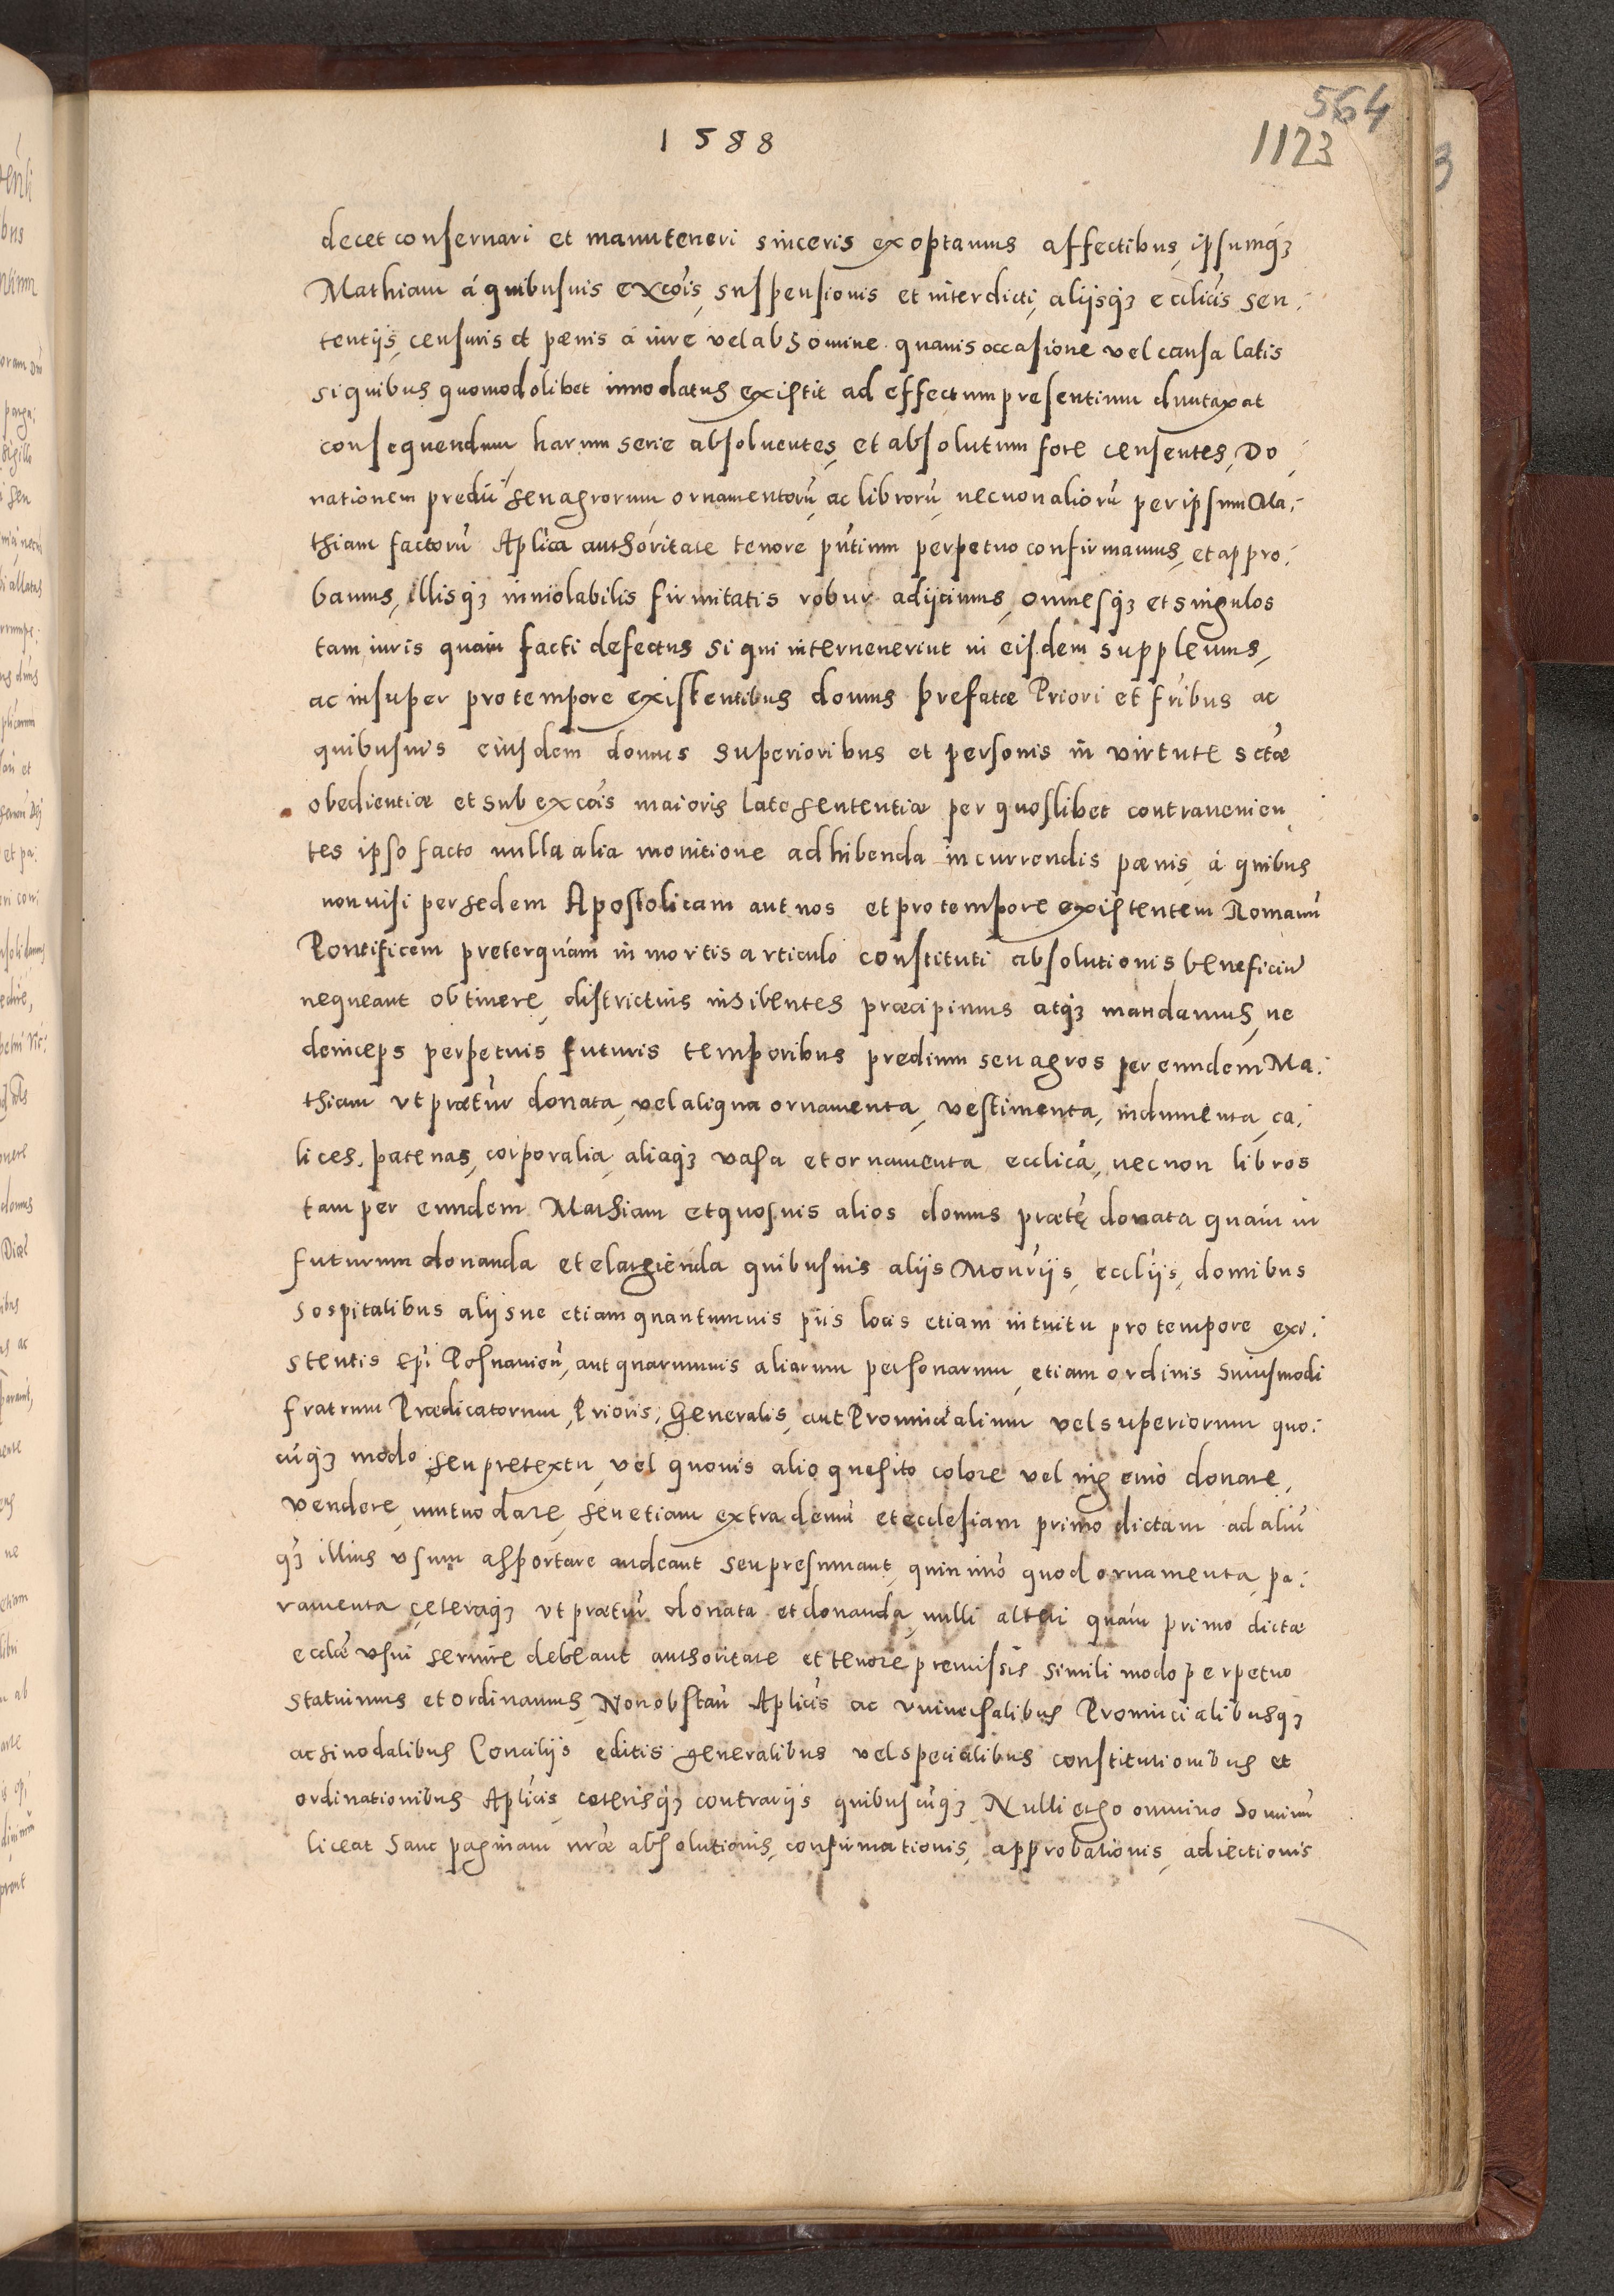 564
1588
1123
decet conseruari et manuteneri sinceris exoptamus affectibus, ipsumq́ꝫ
Mathiam á quibusuis excõis, suspensionis et interdicti, alijsq́ꝫ eccliĉis sen:
tentijs, censuris et pœnis á iure vel ab homine quauis occasione vel causa latis
si quibus quomodolibet innodatus existit ad effectum presentium duntaxat
consequendum harum serie absoluentes, et absolutum fore censentes, Do:
nationem predii seu agrorum ornamentorũ, ac librorũ, necnon aliorũ per ipsum Ma:
thiam factorũ Apl̃ica authoritate tenore pñtium perpetuo confirmamus, et appro:
bamus, illisq́ꝫ inuiolabilis firmitatis robur adijcimus, omnesq́ꝫ et singulos
tam iuris quam facti defectus si qui interuenerint in eisdem supplemus,
ac insuper pro tempore existentibus domus prefatæ Priori et fr̃ibus ac
quibusuis eiusdem domus superioribus et personis in virtute sctæ
obedientiæ et sub excõis maioris late sententiæ per quoslibet contrauenien:
tes ipso facto nulla alia monitione adhibenda incurrendis pœnis, á quibus
non nisi per sedem Apostolicam aut nos et pro tempore existentem Romanũ
Pontificem preterquam in mortis articulo constituti absolutionis beneficiũ
nequeant obtinere, districtius inhibentes præcipimus atq́ꝫ mandamus, ne
deinceps perpetuis futuris temporibus predium seu agros per eundem Ma:
thiam vt præt̃ur donata, vel aliqua ornamenta, vestimenta, indumenta, ca:
lices, patenas, corporalia, aliaq́ꝫ vasa et ornamenta ecclĩca, necnon libros
tam per eundem Mathiam et quosuis alios domus prætę donata quam in
futurum donanda et elargienda quibusuis alijs Monr̃ijs, eccl̃ijs, domibus
hospitalibus alijsue etiam quantumuis piis locis etiam intuitu pro tempore exi:
stentis Ep̃i Posnanioñ, aut quarumuis aliarum personarum, etiam ordinis huiusmodi
fratrum Prædicatorum, Prioris, Generalis, aut Prouincialium vel superiorum quo:
cũq́ꝫ modo seu pretextu, vel quouis alio quesito colore vel ingenio donare,
vendere, mutuo dare, seu etiam extra domũ et ecclesiam primo dictam ad aliũ
q́ꝫ illius vsum asportare audeant seu presumant, quin imo quod ornamenta, pa:
ramenta, ceteraq́ꝫ vt præt̃ur donata et donanda, nulli alteri quam primo dictæ
eccl̃æ vsui seruire debeant authoritate et tenore premissis simili modo perpetuo
statuimus et ordinamus, Non obstañ Apl̃icis ac vniuersalibus Prouincialibusq́ꝫ
ac sinodalibus Concilijs editis generalibus vel specialibus constitutionibus et
ordinationibus Apl̃icis, ceterisq́ꝫ contrarijs quibuscũq́ꝫ Nulli ergo omnino hominũ
liceat hanc paginam nr̃æ absolutionis, confirmationis, approbationis, adiectionis